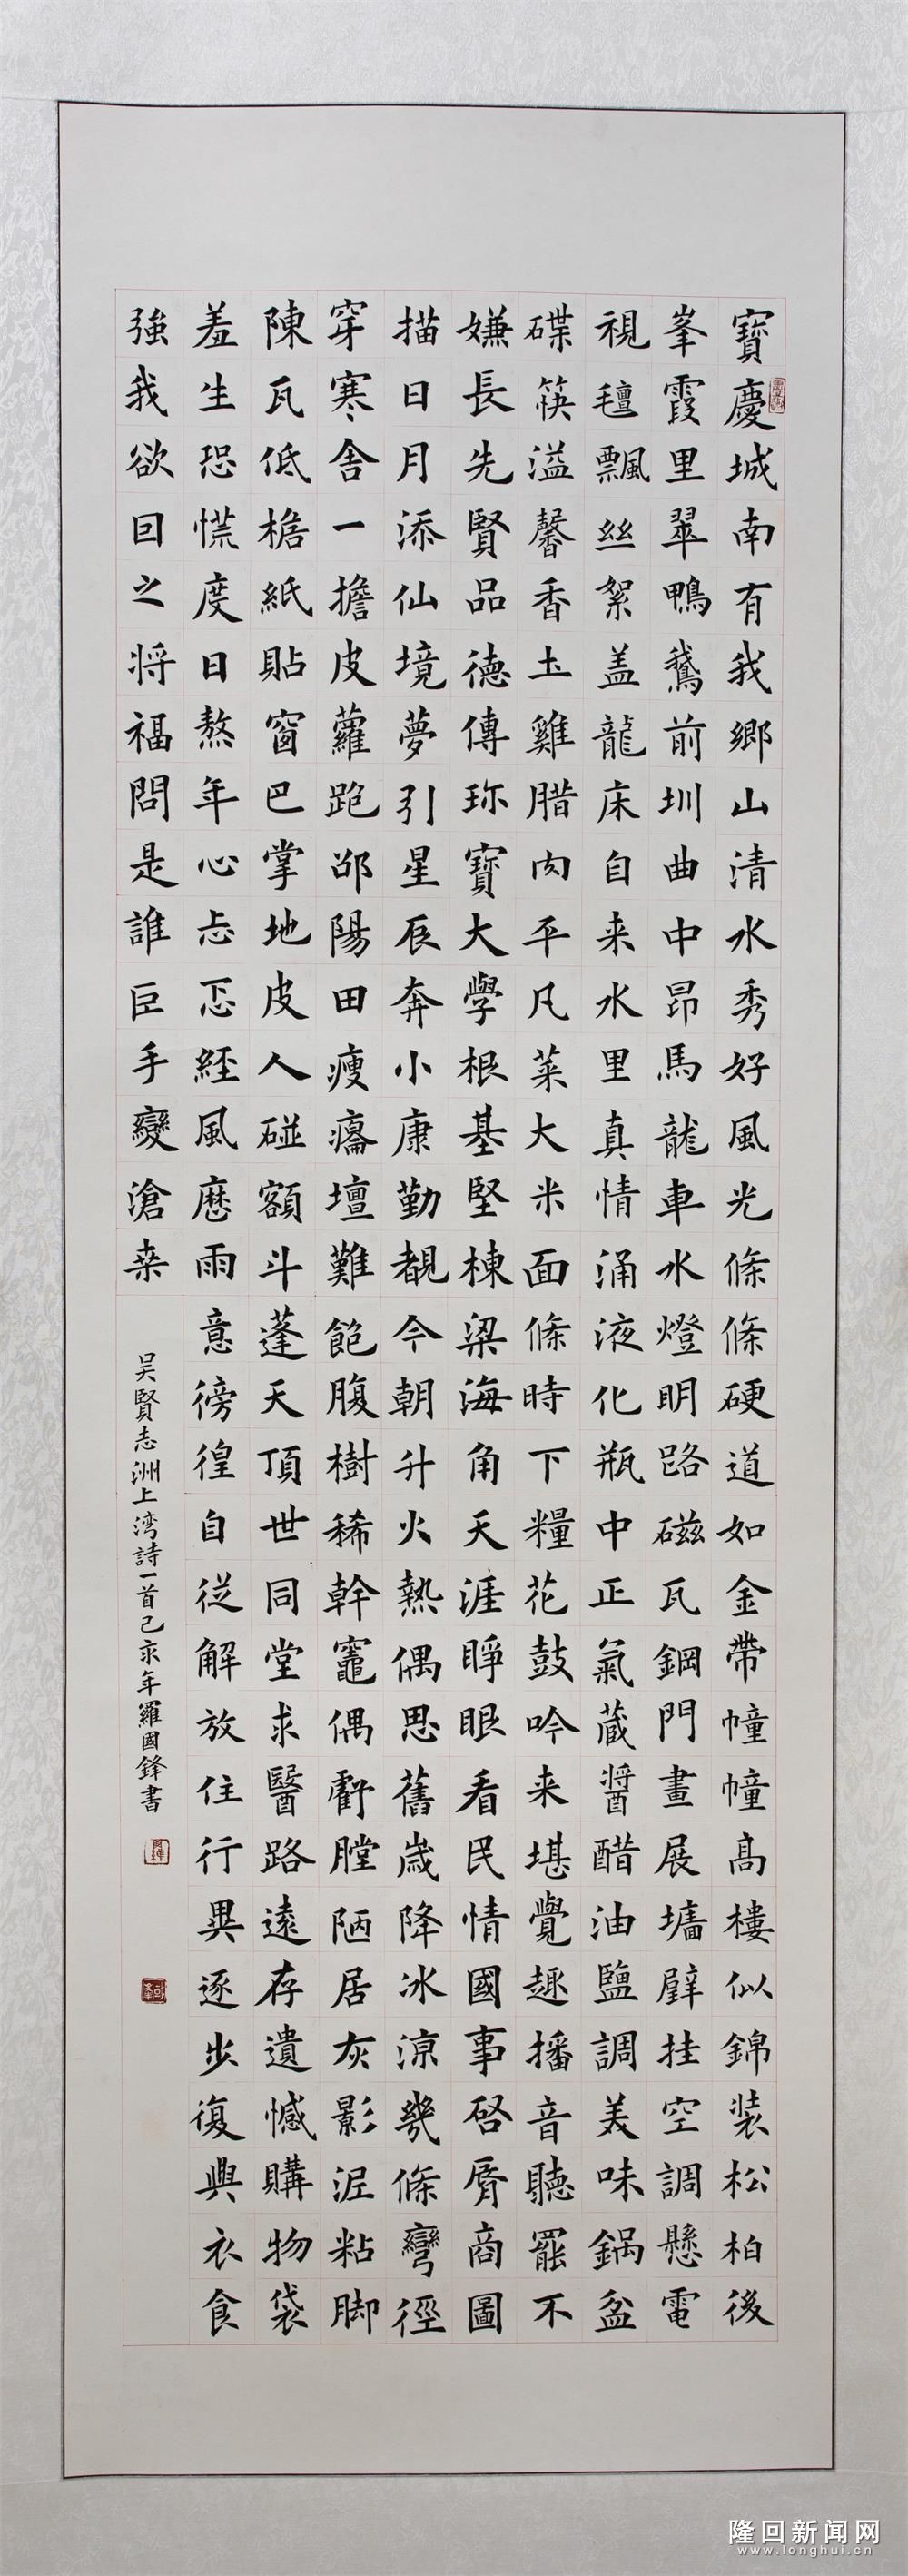 寶慶城南有我鄉山清水秀好風光條條硬道如金帶幢幢高樓似錦裝松柏後
峯霞里翠鴨鵝前圳曲中昂馬龍車水燈明路磁瓦鋼門畫展墻壁挂空調懸電
視氊飄絲絮盖龍床自来水里真情涌液化瓶中正氣蔵醬醋油鹽調美味鍋盆
碟筷溢馨香土雞腊肉平凡菜大米面條時下糧花鼓吟来堪覺趣播音聽罷不
嫌長先賢品德傳珎寶大學根基堅棟梁海角天涯睜眼看民情國事啓脣商圖
描日月添仙境夢引星辰奔小康勤覩今朝升火熱偶思舊歲降冰涼幾條彎徑
穿寒舍一擔皮蘿跑邵陽田瘦癟壇難飽腹樹稀幹竈偶虧膛陋居灰影泥粘脚
陳瓦低檐紙貼窗巴掌地皮人碰額斗蓬天頂世同堂求醫路遠存遺憾購物袋
羞生恐慌度日熬年心忐忑經風歷雨意徬徨自從解放住行異逐步復興衣食
強我欲回之將福問是誰巨手變滄桒
吴賢志洲上湾詩一首己亥年羅國鋒書
隆回新闻网
www.longhui.cn